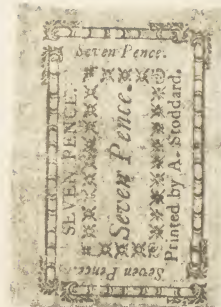 Seven Pence.
SEVEN PENCE.
Seven Pence.
Printed by A. Stoddard.
Seven Pence